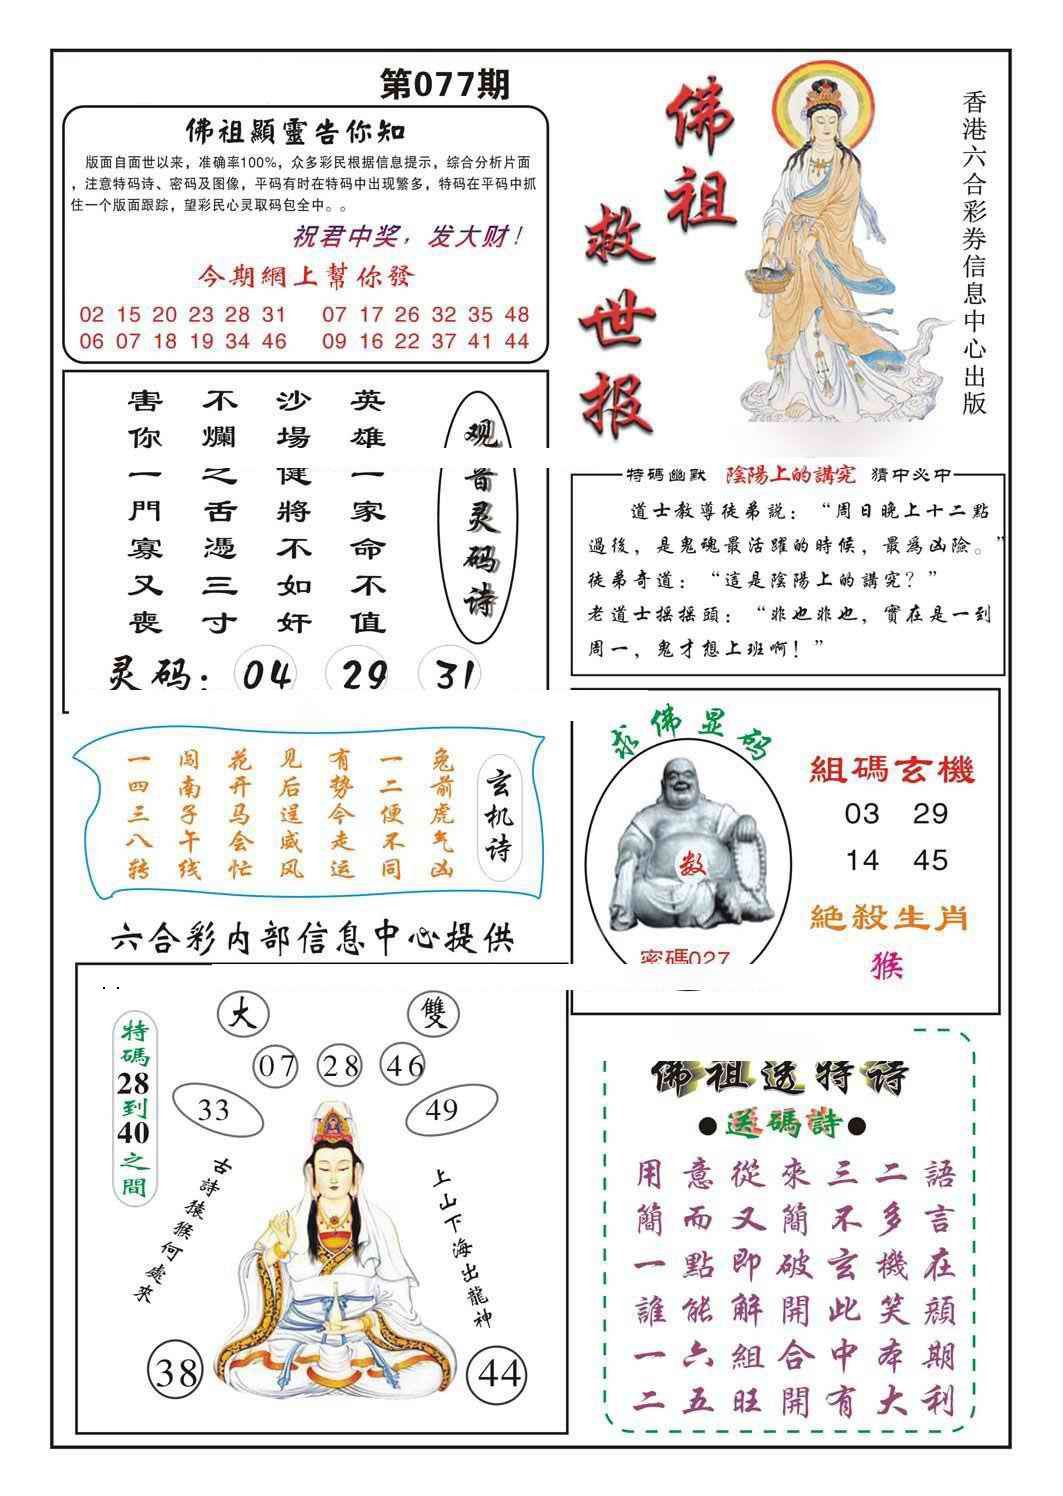 第077期
佛祖顯靈告你知
版面自面世以来，准确率100%，众多彩民根据信息提示，综合分析片面
，注意特码诗、密码及图像，平码有时在特码中出现繁多，特码在平码中抓
住一个版面跟踪，望彩民心灵取码包全中。。
祝君中奖，发大财！
今期網上幫你發
02 15 20 23 28 31 07 17 26 32 35 48
06 07 18 19 34 46 09 16 22 37 41 44
佛祖
救世报
香港六合彩券信息中心出版
观音灵码诗
英雄一家命不值
沙場健將不如奸
不爛之舌憑三寸
害你一門寡又喪
灵码：04 29 31
特碼幽默 陰陽上的講究 猜中必中
道士教導徒弟説：“周日晚上十二點
過後，是鬼魂最活躍的時候，最爲凶險。”
徒弟奇道：“這是陰陽上的講究？”
老道士摇摇頭：“非也非也，實在是一到
周一，鬼才想上班啊！”
玄机诗
兔前虎气凶
一二便不同
有势今走运
见后逞威风
花开马会忙
闯南子午线
一四三八转
求佛显码
数
密碼027
組碼玄機
03 29
14 45
絶殺生肖
猴
六合彩内部信息中心提供
特碼28到40之間
大 雙
07 28 46
33 49
古詩猿猴何處來
上山下海出龍神
38 44
佛祖透特诗
●送碼詩●
用意從來三二語
簡而又簡不多言
一點即破玄機在
誰能解開此笑顔
一六組合中本期
二五旺開有大利